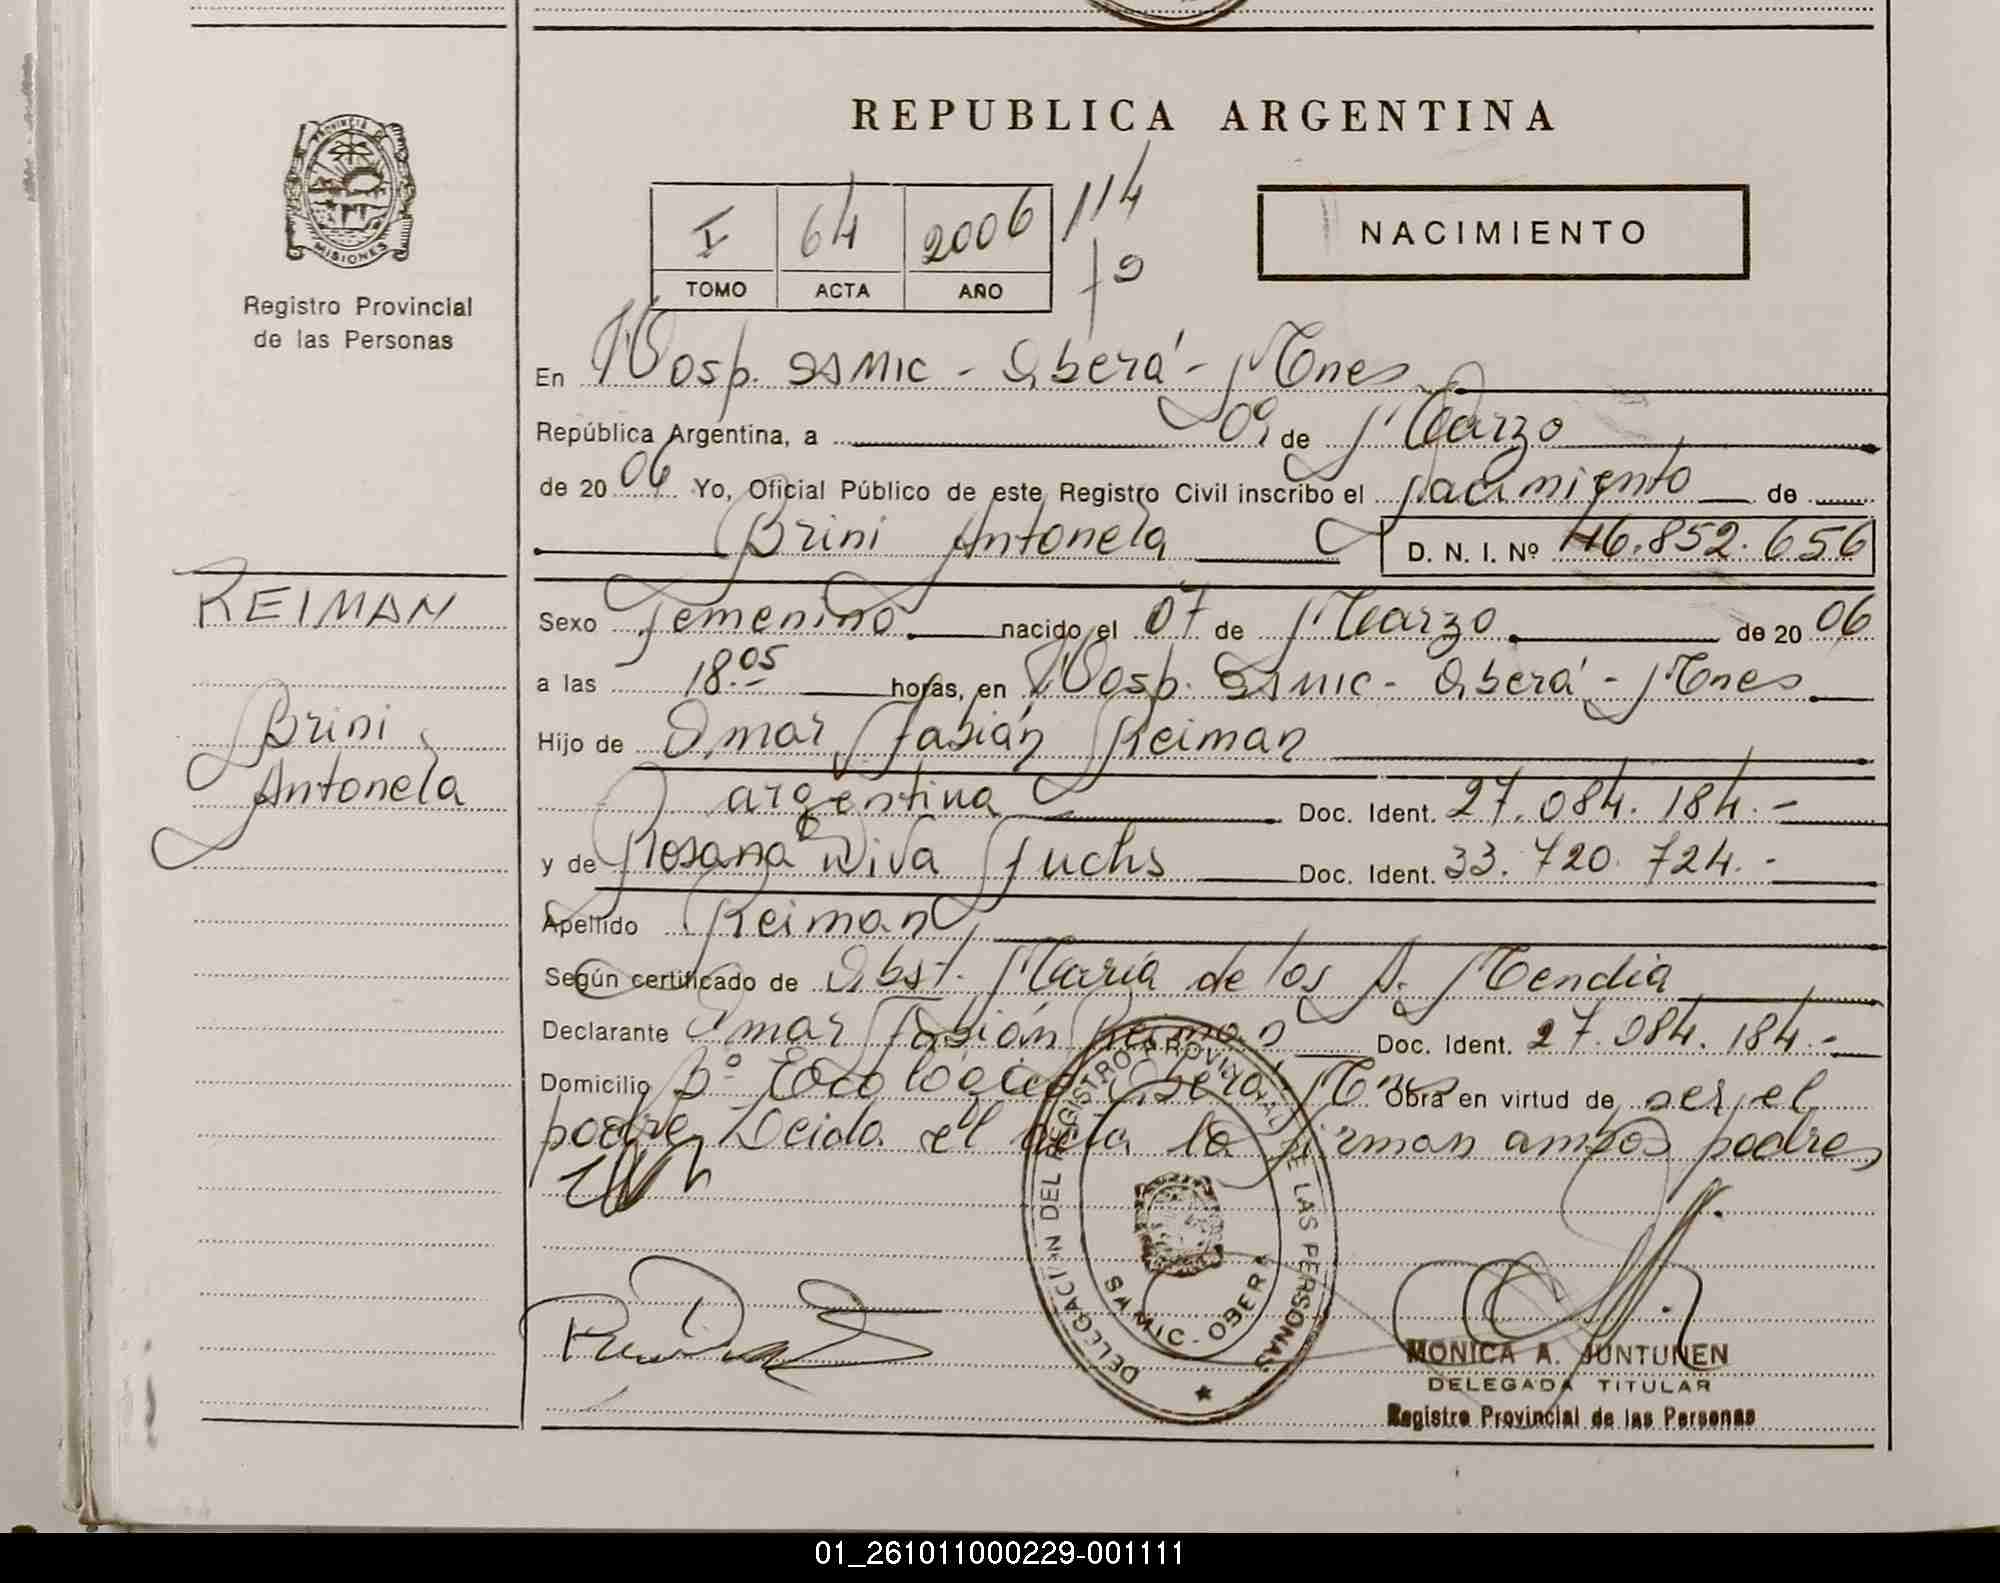 REPUBLICA ARGENTINA
PROVINCIA DE
MISIONES
Registro Provincial
de las Personas
I 64 2006 114
TOMO ACTA AÑO
NACIMIENTO
En Hosp. SAMIC - Oberá - Mnes
República Argentina, a 09 de Marzo
de 2006 Yo, Oficial Público de este Registro Civil inscribo el Nacimiento de
Brini Antonela D. N. I. Nº 46.852.656
REIMAN
Brini
Antonela
Sexo Femenino nacido el 07 de Marzo de 2006
a las 18.05 horas, en Hosp. SAMIC - Oberá - Mnes
Hijo de Omar Fabián Reiman
argentina Doc. Ident. 27.084.184.-
y de Rosana Diva Fuchs Doc. Ident. 33.720.724.-
Apellido Reiman
Según certificado de Obst. María de los A. Mendia
Declarante Omar Fabián Reiman Doc. Ident. 27.084.184.-
Domicilio Bº Ecologico Oberá Mnes Obra en virtud de ser el
padre Leida el acta la firman ambos padres
DELEGACION DEL REGISTRO PROVINCIAL DE LAS PERSONAS
SAMIC - OBERA
MONICA A. JUNTUNEN
DELEGADA TITULAR
Registro Provincial de las Personas
01_261011000229-001111